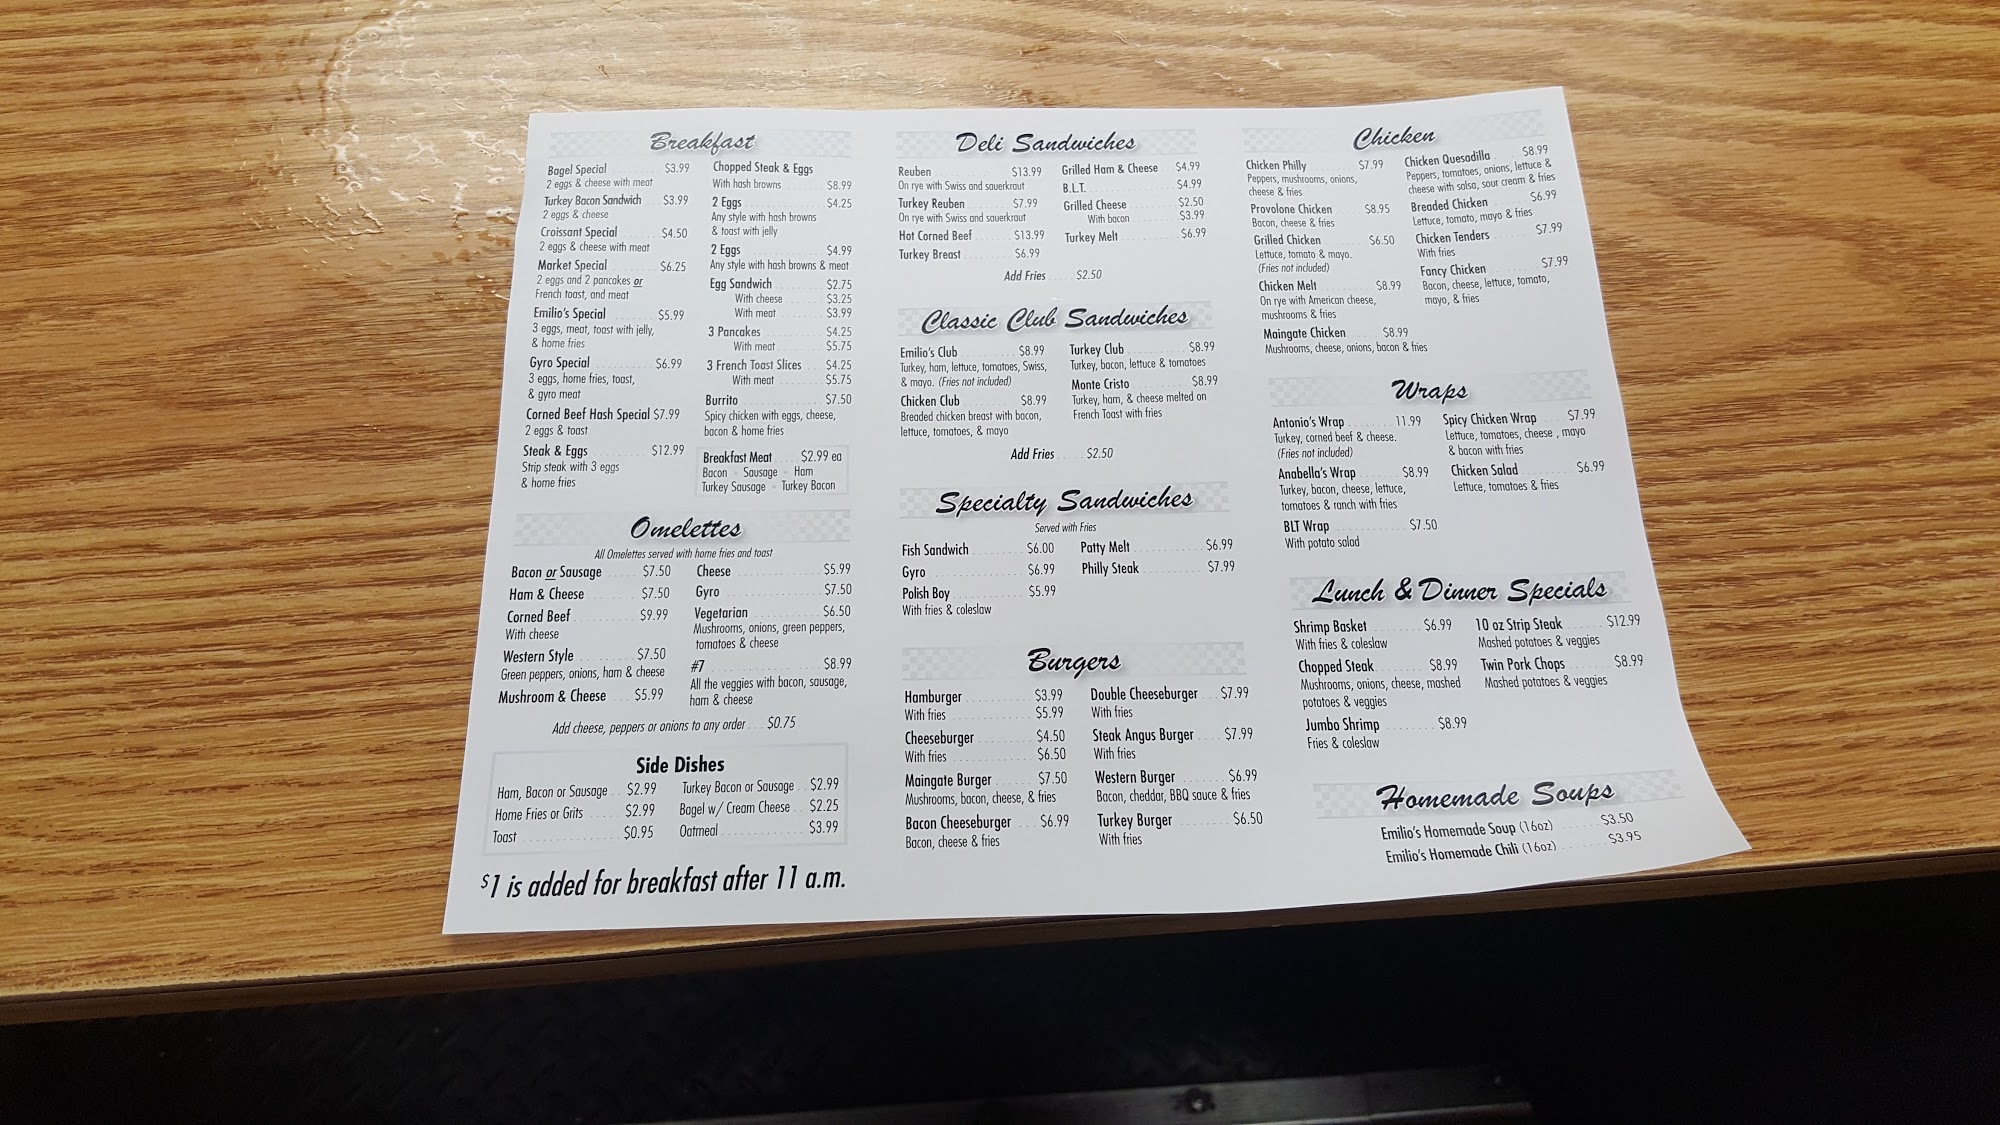 Breakfast
Bagel Special $3.99
2 eggs & cheese with meat
Turkey Bacon Sandwich $3.99
2 eggs & cheese
Croissant Special $4.50
2 eggs & cheese with meat
Market Special $6.25
2 eggs and 2 pancakes or
French toast, and meat
Emilio's Special $5.99
3 eggs, meat, toast with jelly,
& home fries
Gyro Special $6.99
3 eggs, home fries, toast,
& gyro meat
Corned Beef Hash Special $7.99
2 eggs & toast
Steak & Eggs $12.99
Strip steak with 3 eggs
& home fries
Chopped Steak & Eggs
With hash browns $8.99
2 Eggs $4.25
Any style with hash browns
& toast with jelly
2 Eggs $4.99
Any style with hash browns & meat
Egg Sandwich $2.75
With cheese $3.25
With meat $3.99
3 Pancakes $4.25
With meat $5.75
3 French Toast Slices $4.25
With meat $5.75
Burrito $7.50
Spicy chicken with eggs, cheese,
bacon & home fries
Breakfast Meat $2.99 ea
Bacon - Sausage - Ham
Turkey Sausage - Turkey Bacon
Omelettes
All Omelettes served with home fries and toast
Bacon or Sausage $7.50
Ham & Cheese $7.50
Corned Beef $9.99
With cheese
Western Style $7.50
Green peppers, onions, ham & cheese
Mushroom & Cheese $5.99
Cheese $5.99
Gyro $7.50
Vegetarian $6.50
Mushrooms, onions, green peppers,
tomatoes & cheese
#7 $8.99
All the veggies with bacon, sausage,
ham & cheese
Add cheese, peppers or onions to any order $0.75
Side Dishes
Ham, Bacon or Sausage $2.99
Home Fries or Grits $2.99
Toast $0.95
Turkey Bacon or Sausage $2.99
Bagel w/ Cream Cheese $2.25
Oatmeal $3.99
$1 is added for breakfast after 11 a.m.
Deli Sandwiches
Reuben $13.99
On rye with Swiss and sauerkraut
Turkey Reuben $7.99
On rye with Swiss and sauerkraut
Hot Corned Beef $13.99
Turkey Breast $6.99
Grilled Ham & Cheese $4.99
B.L.T. $4.99
Grilled Cheese $2.50
With bacon $3.99
Turkey Melt $6.99
Add Fries $2.50
Classic Club Sandwiches
Emilio's Club $8.99
Turkey, ham, lettuce, tomatoes, Swiss,
& mayo. (Fries not included)
Chicken Club $8.99
Breaded chicken breast with bacon,
lettuce, tomatoes, & mayo
Turkey Club $8.99
Turkey, bacon, lettuce & tomatoes
Monte Cristo $8.99
Turkey, ham, & cheese melted on
French Toast with fries
Add Fries $2.50
Specialty Sandwiches
Served with Fries
Fish Sandwich $6.00
Gyro $6.99
Polish Boy $5.99
With fries & coleslaw
Patty Melt $6.99
Philly Steak $7.99
Burgers
Hamburger $3.99
With fries $5.99
Cheeseburger $4.50
With fries $6.50
Maingate Burger $7.50
Mushrooms, bacon, cheese, & fries
Bacon Cheeseburger $6.99
Bacon, cheese & fries
Double Cheeseburger $7.99
With fries
Steak Angus Burger $7.99
With fries
Western Burger $6.99
Bacon, cheddar, BBQ sauce & fries
Turkey Burger $6.50
With fries
Chicken
Chicken Philly $7.99
Peppers, mushrooms, onions,
cheese & fries
Provolone Chicken $8.95
Bacon, cheese & fries
Grilled Chicken $6.50
Lettuce, tomato & mayo.
(Fries not included)
Chicken Melt $8.99
On rye with American cheese,
mushrooms & fries
Maingate Chicken $8.99
Mushrooms, cheese, onions, bacon & fries
Chicken Quesadilla $8.99
Peppers, tomatoes, onions, lettuce &
cheese with salsa, sour cream & fries
Breaded Chicken $6.99
Lettuce, tomato, mayo & fries
Chicken Tenders $7.99
With fries
Fancy Chicken $7.99
Bacon, cheese, lettuce, tomato,
mayo, & fries
Wraps
Antonio's Wrap 11.99
Turkey, corned beef & cheese.
(Fries not included)
Anabella's Wrap $8.99
Turkey, bacon, cheese, lettuce,
tomatoes & ranch with fries
BLT Wrap $7.50
With potato salad
Spicy Chicken Wrap $7.99
Lettuce, tomatoes, cheese , mayo
& bacon with fries
Chicken Salad $6.99
Lettuce, tomatoes & fries
Lunch & Dinner Specials
Shrimp Basket $6.99
With fries & coleslaw
Chopped Steak $8.99
Mushrooms, onions, cheese, mashed
potatoes & veggies
Jumbo Shrimp $8.99
Fries & coleslaw
10 oz Strip Steak $12.99
Mashed potatoes & veggies
Twin Pork Chops $8.99
Mashed potatoes & veggies
Homemade Soups
Emilio's Homemade Soup (16oz) $3.50
Emilio's Homemade Chili (16oz) $3.95